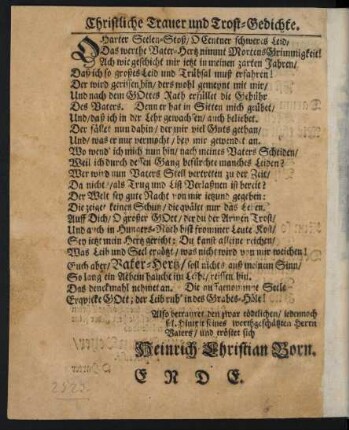 Christliche Trauer und Trost-Gedichte.
O Harter Seelen-Stoß/ O Centner schweres Leid/
Das werthe Vater-Hertz nimmt Mortens Grimmigkeit!
Ach wie geschicht mir jetzt in meinen zarten Jahren/
Daß ich so großes Leid und Trübsal muß erfahren!
Der wird gerissen hin/ ders wohl gemeynt mit mir/
Und nach dem GOttes Rath erfüllet die Gebühr
Des Vaters. Denn er hat in Sitten mich geübet/
Und/ daß ich in der Lehr gewachsen/ auch beliebet.
Der fället nun dahin/ der mir viel Guts gethan/
Und/ was er nur vermocht/ bey mir gewendt an.
Wo wend' ich mich nun hin/ nach meines Vaters Scheiden/
Weil ich durch dessen Gang befürchte manches Leiden?
Wer wird nun Vaters Stell vertreten zu der Zeit/
Da nicht/ als Trug und List Verlaßnen ist bereit?
Der Welt sey gute Nacht von mir jetzund gegeben:
Die zeiget keinen Schein/ die quälet nur das Leben.
Auff Dich/ O grosser GOtt/ der du der Armen Trost/
Und auch in Hungers-Noth bist frommer Leute Kost/
Sey jetzt mein Hertz gericht: Du kanst alleine reichen/
Was Leib und Seel ergötzt/ was nicht wird von mir weichen!
Euch aber/ Vater-Hertz/ laß nicht aus meinem Sinn/
So lang ein Athem haucht im Leibe/ reissen hin.
Das denckmahl nehmet an. Die auffgenommne Seele
Erqvicke GOtt; der Leib ruh' in des Grabes-Höle!
Also betrauret den zwar tödtlichen/ jedennoch
sel. Hintritt seines werthgeschätzten Herrn
Vaters/ und tröstet sich
Heinrich Christian Born.
E N D E.